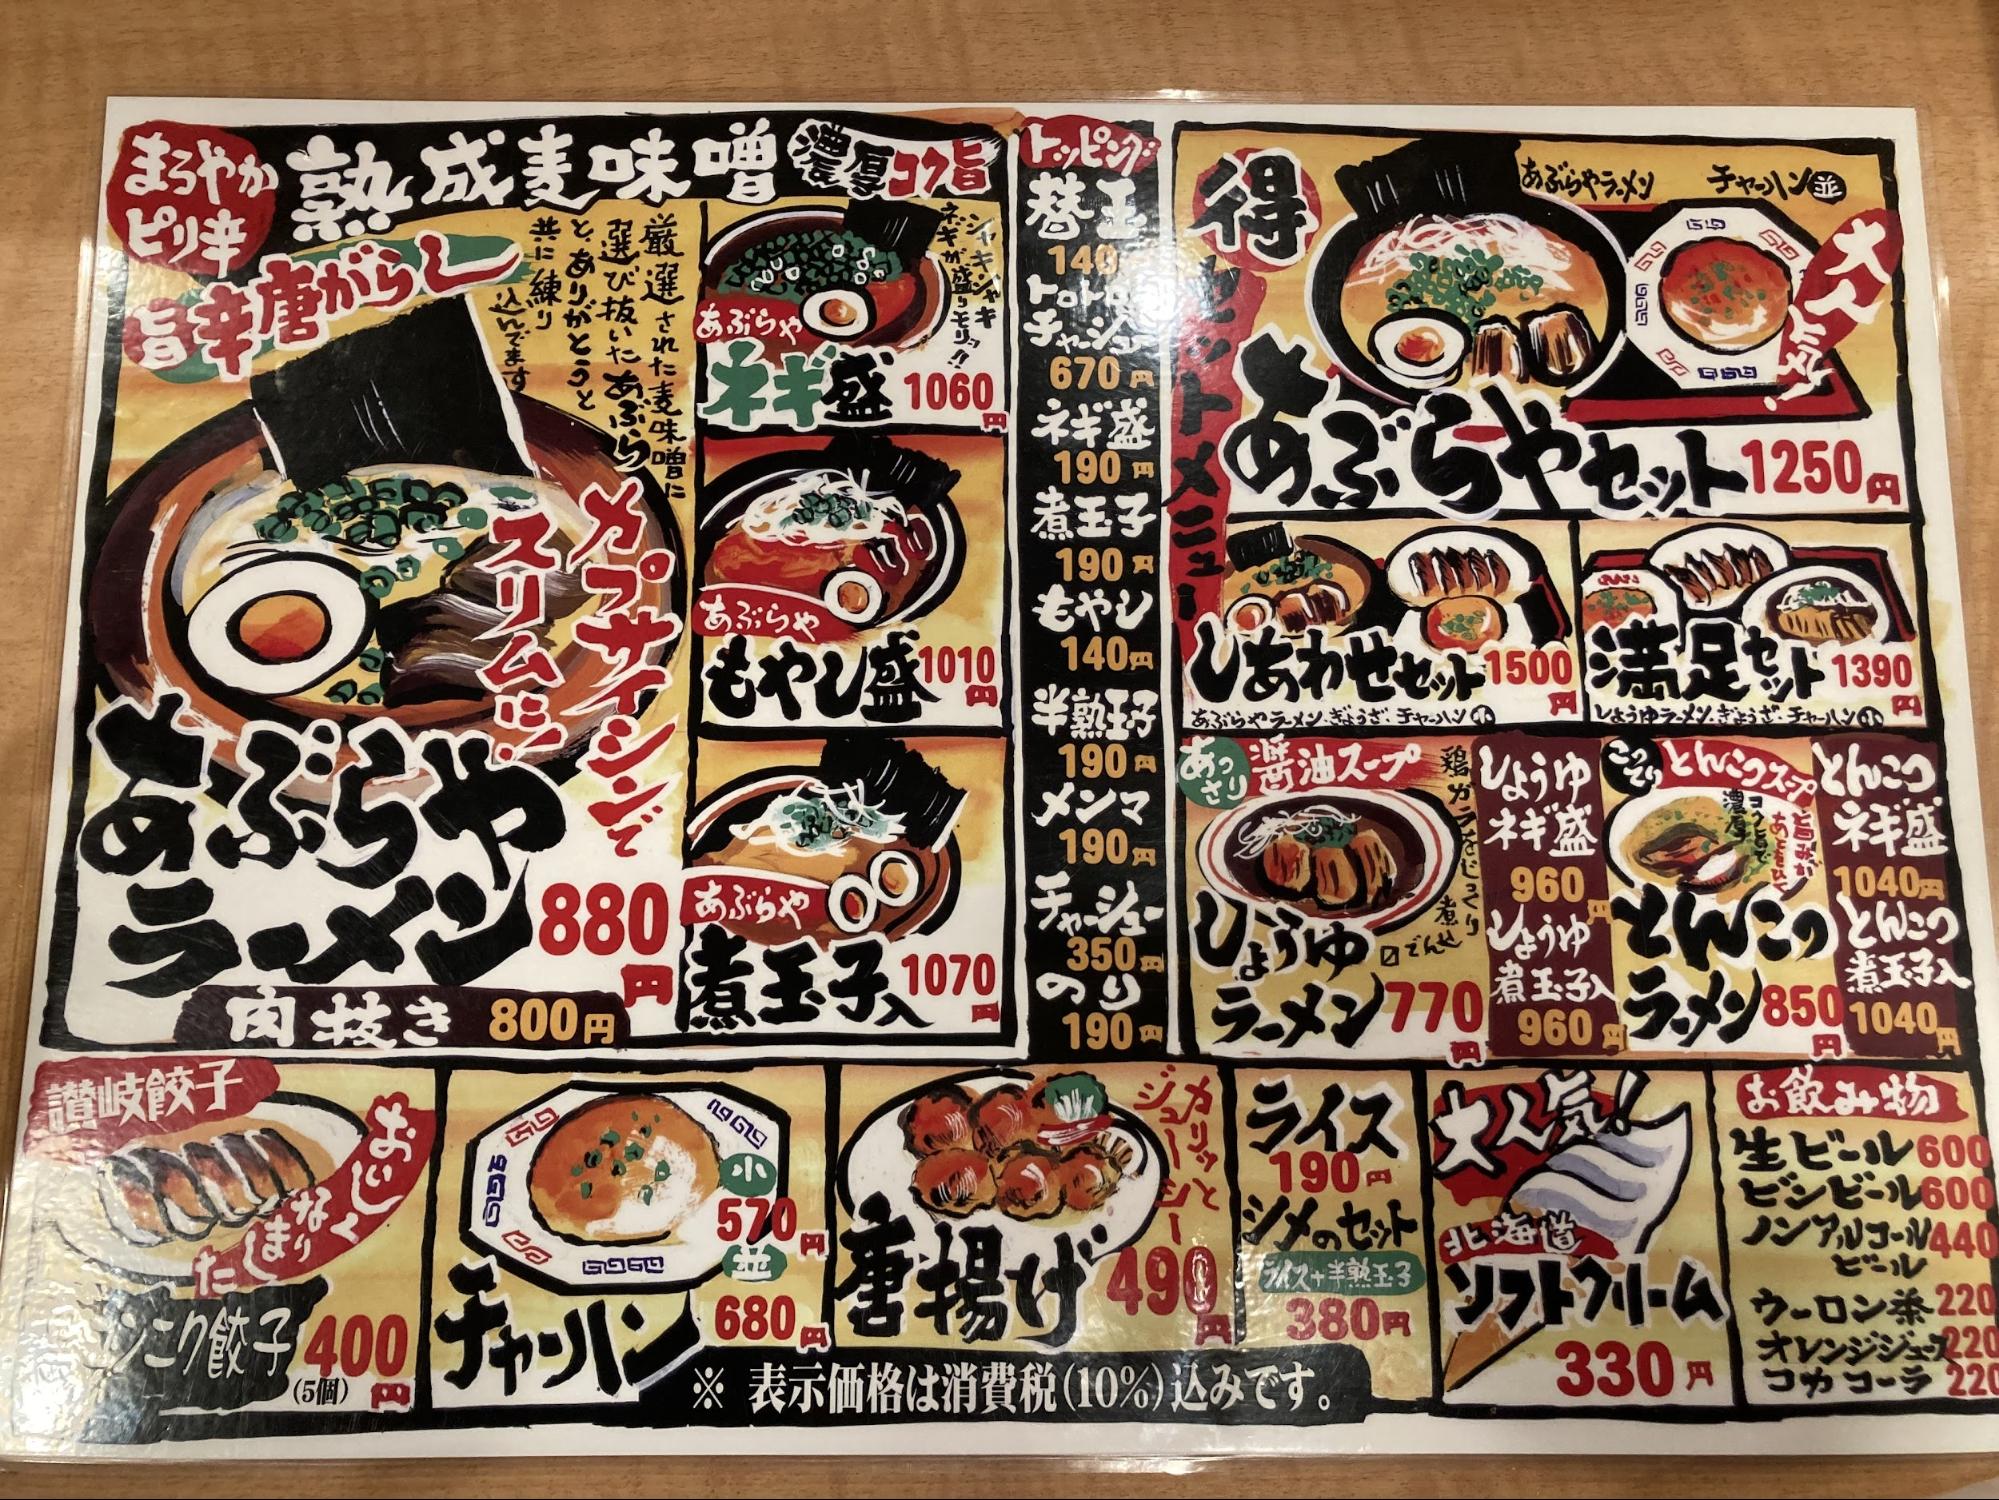 まろやか
ピリ辛
熟成麦味噌
濃厚コク旨
旨辛唐がらし
厳選された麦味噌に
選び抜いたあぶら
と、ありがとこっと
共に練り
込んでます
カプサイシンで
スリムに!
あぶらや
ラーメン
880円
肉抜き 800円
シャキシャキ
ネギが盛りモリッ!!
あぶらや
ネギ盛 1060円
あぶらや
もやし盛 1010円
あぶらや
煮玉子入 1070円
トッピング
替玉
140
チャーシュー
670円
ネギ盛
190円
煮玉子
190円
もやし
140円
半熟玉子
190円
メンマ
190円
チャーシュー
350円
のり
190円
得
セットメニュー
あぶらやラーメン チャーハン並
大人気!
あぶらやセット 1250円
しあわせセット 1500円
あぶらやラーメン・ぎょうざ・チャーハン小
満足セット 1390円
しょうゆラーメン・ぎょうざ・チャーハン小
あっさり
醤油スープ
鶏ガラをじっくり
煮込
でん
しょうゆ
ラーメン 770円
しょうゆ
ネギ盛
960円
しょうゆ
煮玉子入
960円
こってり
とんこつスープ
濃厚
とんこつ
ラーメン 850円
とんこつ
ネギ盛
1040円
とんこつ
煮玉子入
1040円
讃岐餃子
おいしく
なり
ました
餃子 400円
(5個)
小
570円
並
680円
チャーハン
カリッと
ジューシー
唐揚げ 490円
ライス
190円
シメのセット
ライス+半熟玉子
380円
大人気!
北海道
ソフトクリーム
330円
お飲み物
生ビール 600
ビンビール 600
ノンアルコール
ビール 440
ウーロン茶 220
オレンジジュース 220
コカコーラ 220
※ 表示価格は消費税(10%)込みです。